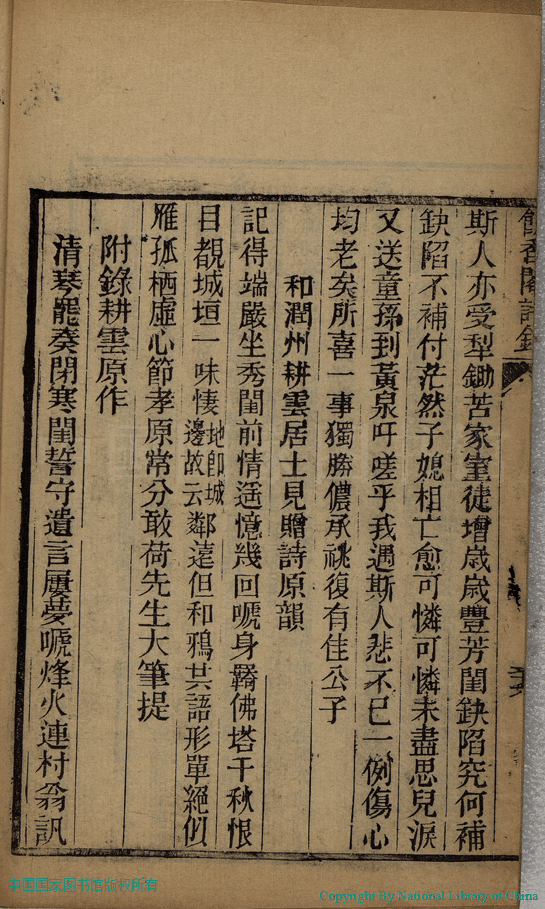 斯人亦受犁鋤苦家室徒增歲歲豐芳閨缺陷究何補
缺陷不補付茫然子媳相亡愈可憐可憐未盡思兒淚
又送童孫到黃泉吁嗟乎我遇斯人悲不已一例傷心
均老矣所喜一事獨勝儂承祧復有佳公子
和潤州耕雲居士見贈詩原韻
記得端嚴坐秀閨前情遥憶幾回嗁身羇佛塔千秋恨
目覩城垣一味悽地卽城邊故云鄰遠但和鴉共語形單絕似
雁孤栖虛心節孝原常分敢荷先生大筆提
附錄耕雲原作
清琴罷奏閉寒閨誓守遺言屢夢嗁烽火連村翁訊
中国国家图书馆版权所有
Copyright By National Library of China